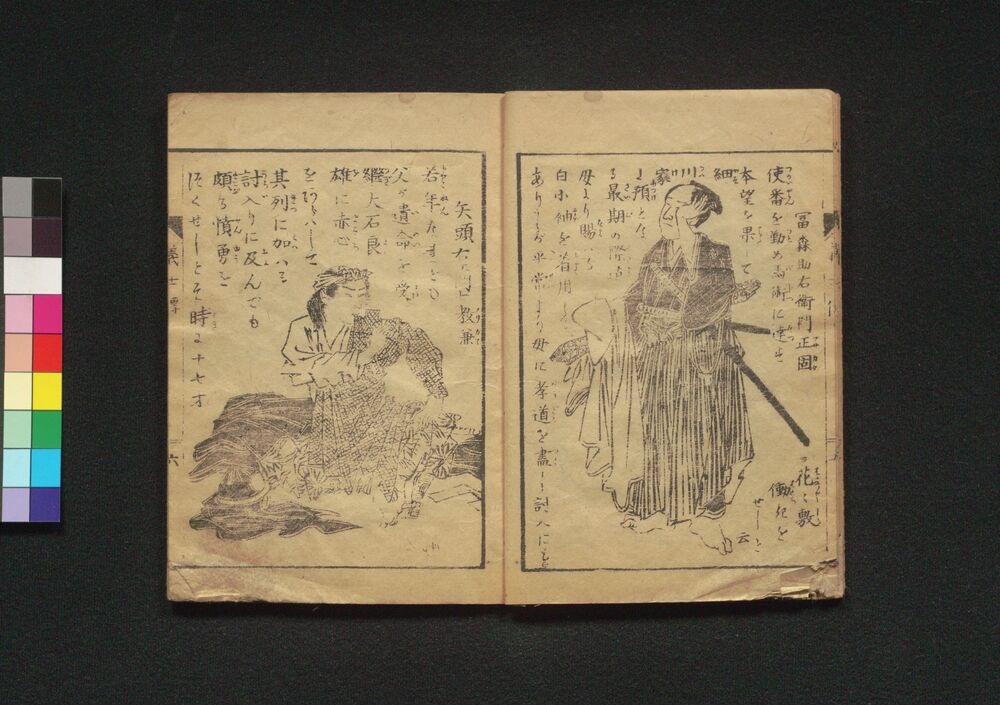 冨森助右衛門正固
使番を勤め馬術に達す
本望を果して
細川家
に預となる
最期の際
母より賜
白小袖を着用し
ありしが平常より母に孝道を盡し討入にも
花々敷
働きを
せしと
云
矢頭右 教兼
若年なれども
父が遺命を受
継大石良
雄に赤心
をあらハして
其列に加ハる
討入りに及んでも
頗る憤勇を
尽くせしとぞ時に十七才
義士
六